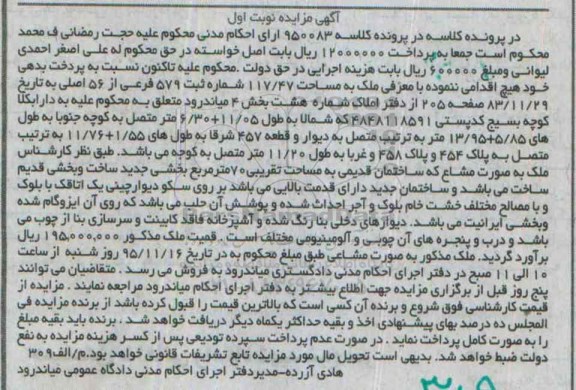 آگهی مزایده نوبت اول
در پرونده کلاسه در پرونده کلاسه ۹۵۰۰۸۳ ارای احکام مدنی محکوم علیه حجت رمضانی ف محمد
محکوم است جمعا به پرداخت ۱۲۰۰۰۰۰۰ ریال بابت اصل خواسته در حق محکوم له علی اصغر احمدی
لیوانی ومبلغ ۶۰۰۰۰۰ ریال بابت هزینه اجرایی در حق دولت .محکوم علیه تاکنون نسبت به پرداخت بدهی
خود هیچ اقدامی ننموده با معرفی ملک به مساحت ۱۱۷/۴۷ شماره ثبت ۵۷۹ فرعی از ۵۶ اصلی به تاریخ
۸۳/۱۱/۲۹ صفحه ۲۰۵ از دفتر املاک شماره هشت بخش ۴ میاندرود متعلق به محکوم علیه به دارابکلا
کوچه بسیج کدپستی ۴۸۴۸۱۱۸۵۹۱ که شمالا به طول ۱۱/۰۵+۶/۳۰ متر متصل به کوچه جنوبا به طول
های ۵/۸۵+۱۳/۹۵ متر به ترتیب متصل به دیوار و قطعه ۴۵۷ شرقا به طول های ۱/۵۵+۱۱/۷۶ به ترتیب
متصل به پلاک ۴۵۴ و پلاک ۴۵۸ و غربا به طول ۱۱/۲۰ متر متصل به کوچه می باشد. طبق نظر کارشناس
ملک به صورت مشاع که ساختمان قدیمی به مساحت تقریبی ۷۰مترمربع بخشی جدید ساخت وبخشی قدیم
ساخت می باشد و ساختمان جدید دارای قدمت بالایی می باشد بر روی سکو دیوارچینی یک اتاقک با بلوک
و با مصالح مختلف خشت خام بلوک و آجر احداث شده و پوشش آن حلب می باشد که روی آن ایزوگام شده
وبخشی ایرانیت می باشد. دیوارهای دخلی به رنگ شده و آشپزخانه فاقد کابینت و سرسازی بنا از چوب می
باشد و درب و پنجره های آن چوبی و آلومینیومی مختلف است . قمیت ملک مذکور ۱۹۵,۰۰۰,۰۰۰ ریال
برآورد گردید. ملک مذکور به صورت مشاعی طبق مبلغ محکوم به در تاریخ ۹۵/۱۱/۱۶ روز شنبه از ساعت
۱۰ الی ۱۱ صبح در دفتر اجرای احکام مدنی دادگستری میاندرود به فروش می رسد . متقاضیان می توانند
پنج روز قبل از برگزاری مزایده جهت اطلاع بیشتر به دفتر اجرای احکام میاندرود مراجعه نمایند . مزایده از
قیمت کارشناسی فوق شروع و برنده آن کسی است که بالاترین قیمت را قبول کرده باشد از برنده مزایده فی
المجلس ده درصد بهای پیشنهادی اخذ و بقیه حداکثر یکماه دیگر دریافت خواهد شد . برنده باید بقیه مبلغ
را به صورت کامل پرداخت نماید . در صورت عدم پرداخت سپرده تودیعی پس از کسر هزینه مزایده به نفع
دولت ضبط خواهد شد. بدیهی است تحویل مال مورد مزایده تابع تشریفات قانونی خواهد بود.م/الف۳۰۹
هادی آزرده-مدیردفتر اجرای احکام مدنی دادگاه عمومی میاندرود
۳۰۹